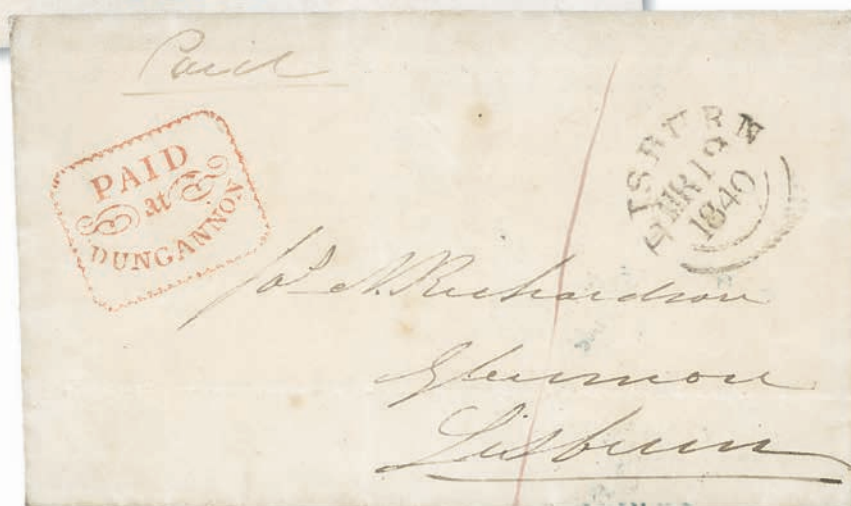 Paid
PAID
at
DUNGANNON
LISBURN
MR 19
1840
Jos N Richardson
Glenmore
Lisburn